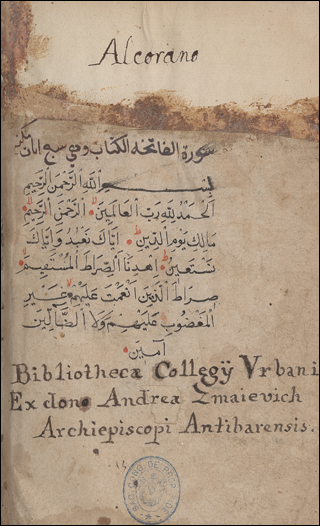 Alcorano
سورة الفاتحة الكتاب وهي سبع ايات
بسم الله الرحمن الرحيم
الحمد لله رب العالمين الرحمن الرحيم
مالك يوم الدين اياك نعبد واياك
نستعين اهدنا الصراط المستقيم
صراط الذين انعمت عليهم غير
المغضوب عليهم ولا الضالين
آمين
Bibliothecæ Collegÿ Vrbani
Ex dono Andreæ Zmaievich
Archiepiscopi Antibarensis.